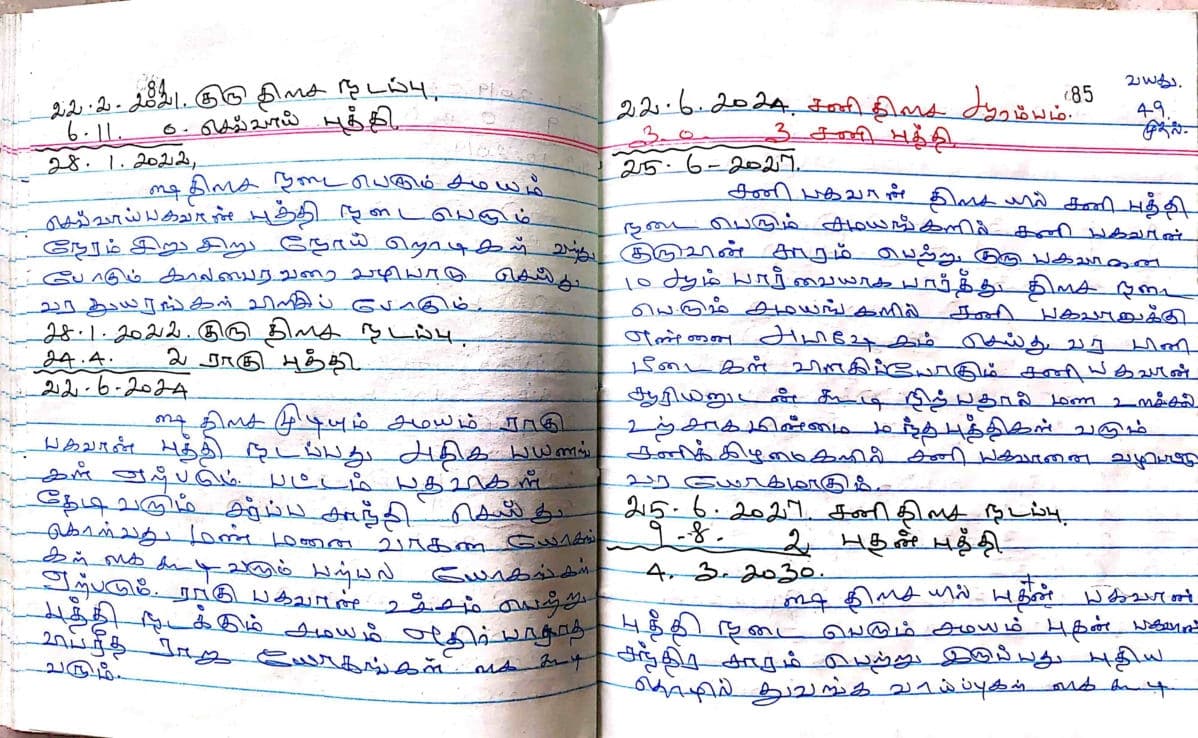 84
22.2.2021. குரு திசை நடப்பு.
6.11. 0. செவ்வாய் புத்தி
28.1.2022,
ஷை திசை நடை பெரும் சமயம்
செவ்வாய்பகவான் புத்தி நடை பெரும்
நேரம் சிறு சிறு நோய் நொடிகள் வந்து
போகும் காலபைரவரை வழிபாடு செய்து
வர துயரங்கள் விலகிப் போகும்.
28.1.2022. குரு திசை நடப்பு.
24.4. 2 ராகு புத்தி
22.6-2024
ஷை திசை முடியும் சமயம் ராகு
பகவான் புத்தி நடப்பது அதிக பயணங்
கள் ஏற்படும். பட்டம் பதவிகள்
தேடி வரும் சர்ப்ப சாந்தி செய்து
கொள்வது மண் மனை வாகன யோகங்
கள் கை கூடி வரும் பற்பல யோகங்கள்
ஏற்படும். ராகு பகவான் உச்சம் பெற்று
புத்தி நடக்கும் சமயம் எதிர் பாராத
விபரீத ராஜ யோகங்கள் கை கூடி
வரும்.
85
வயது.
49
முதல்.
22.6.2024. சனி திசை ஆரம்பம்.
3 0. 3 சனி புத்தி
25.6-2027.
சனி பகவான் திசை யில் சனி புத்தி
நடை பெரும் சமயங்களில் சனி பகவான்
குருவின் சாரம் பெற்று குரு பகவானை
10 ஆம் பார்வையாக பார்த்து திசை நடை
பெரும் சமயங்களில் சனி பகவானுக்கு
எண்ணை அபிஷேகம் செய்து வர பிணி
பீடை கள் விலகிப்போகும் சனி பகவான்
சூரியனுடன் கூடி நிற்பதால் மண உளச்சல்
உற்சாக மின்மை இந்தபுத்திகள் வரும்
சனிக்கிழமைகளில் சனி பகவானை வழிபாடு
வர யோகமாகும்.
25.6.2027. சனி திசை நடப்பு.
9-8. 2 புதன் புத்தி
4.3.2030.
ஷை திசை யில் புதன் பகவான்
புத்தி நடை பெரும் சமயம் புதன் பகவான்
சந்திர சாரம் பெற்று இருப்பது புதிய
தொழில் துவங்க வாய்ப்புகள் கை கூடி